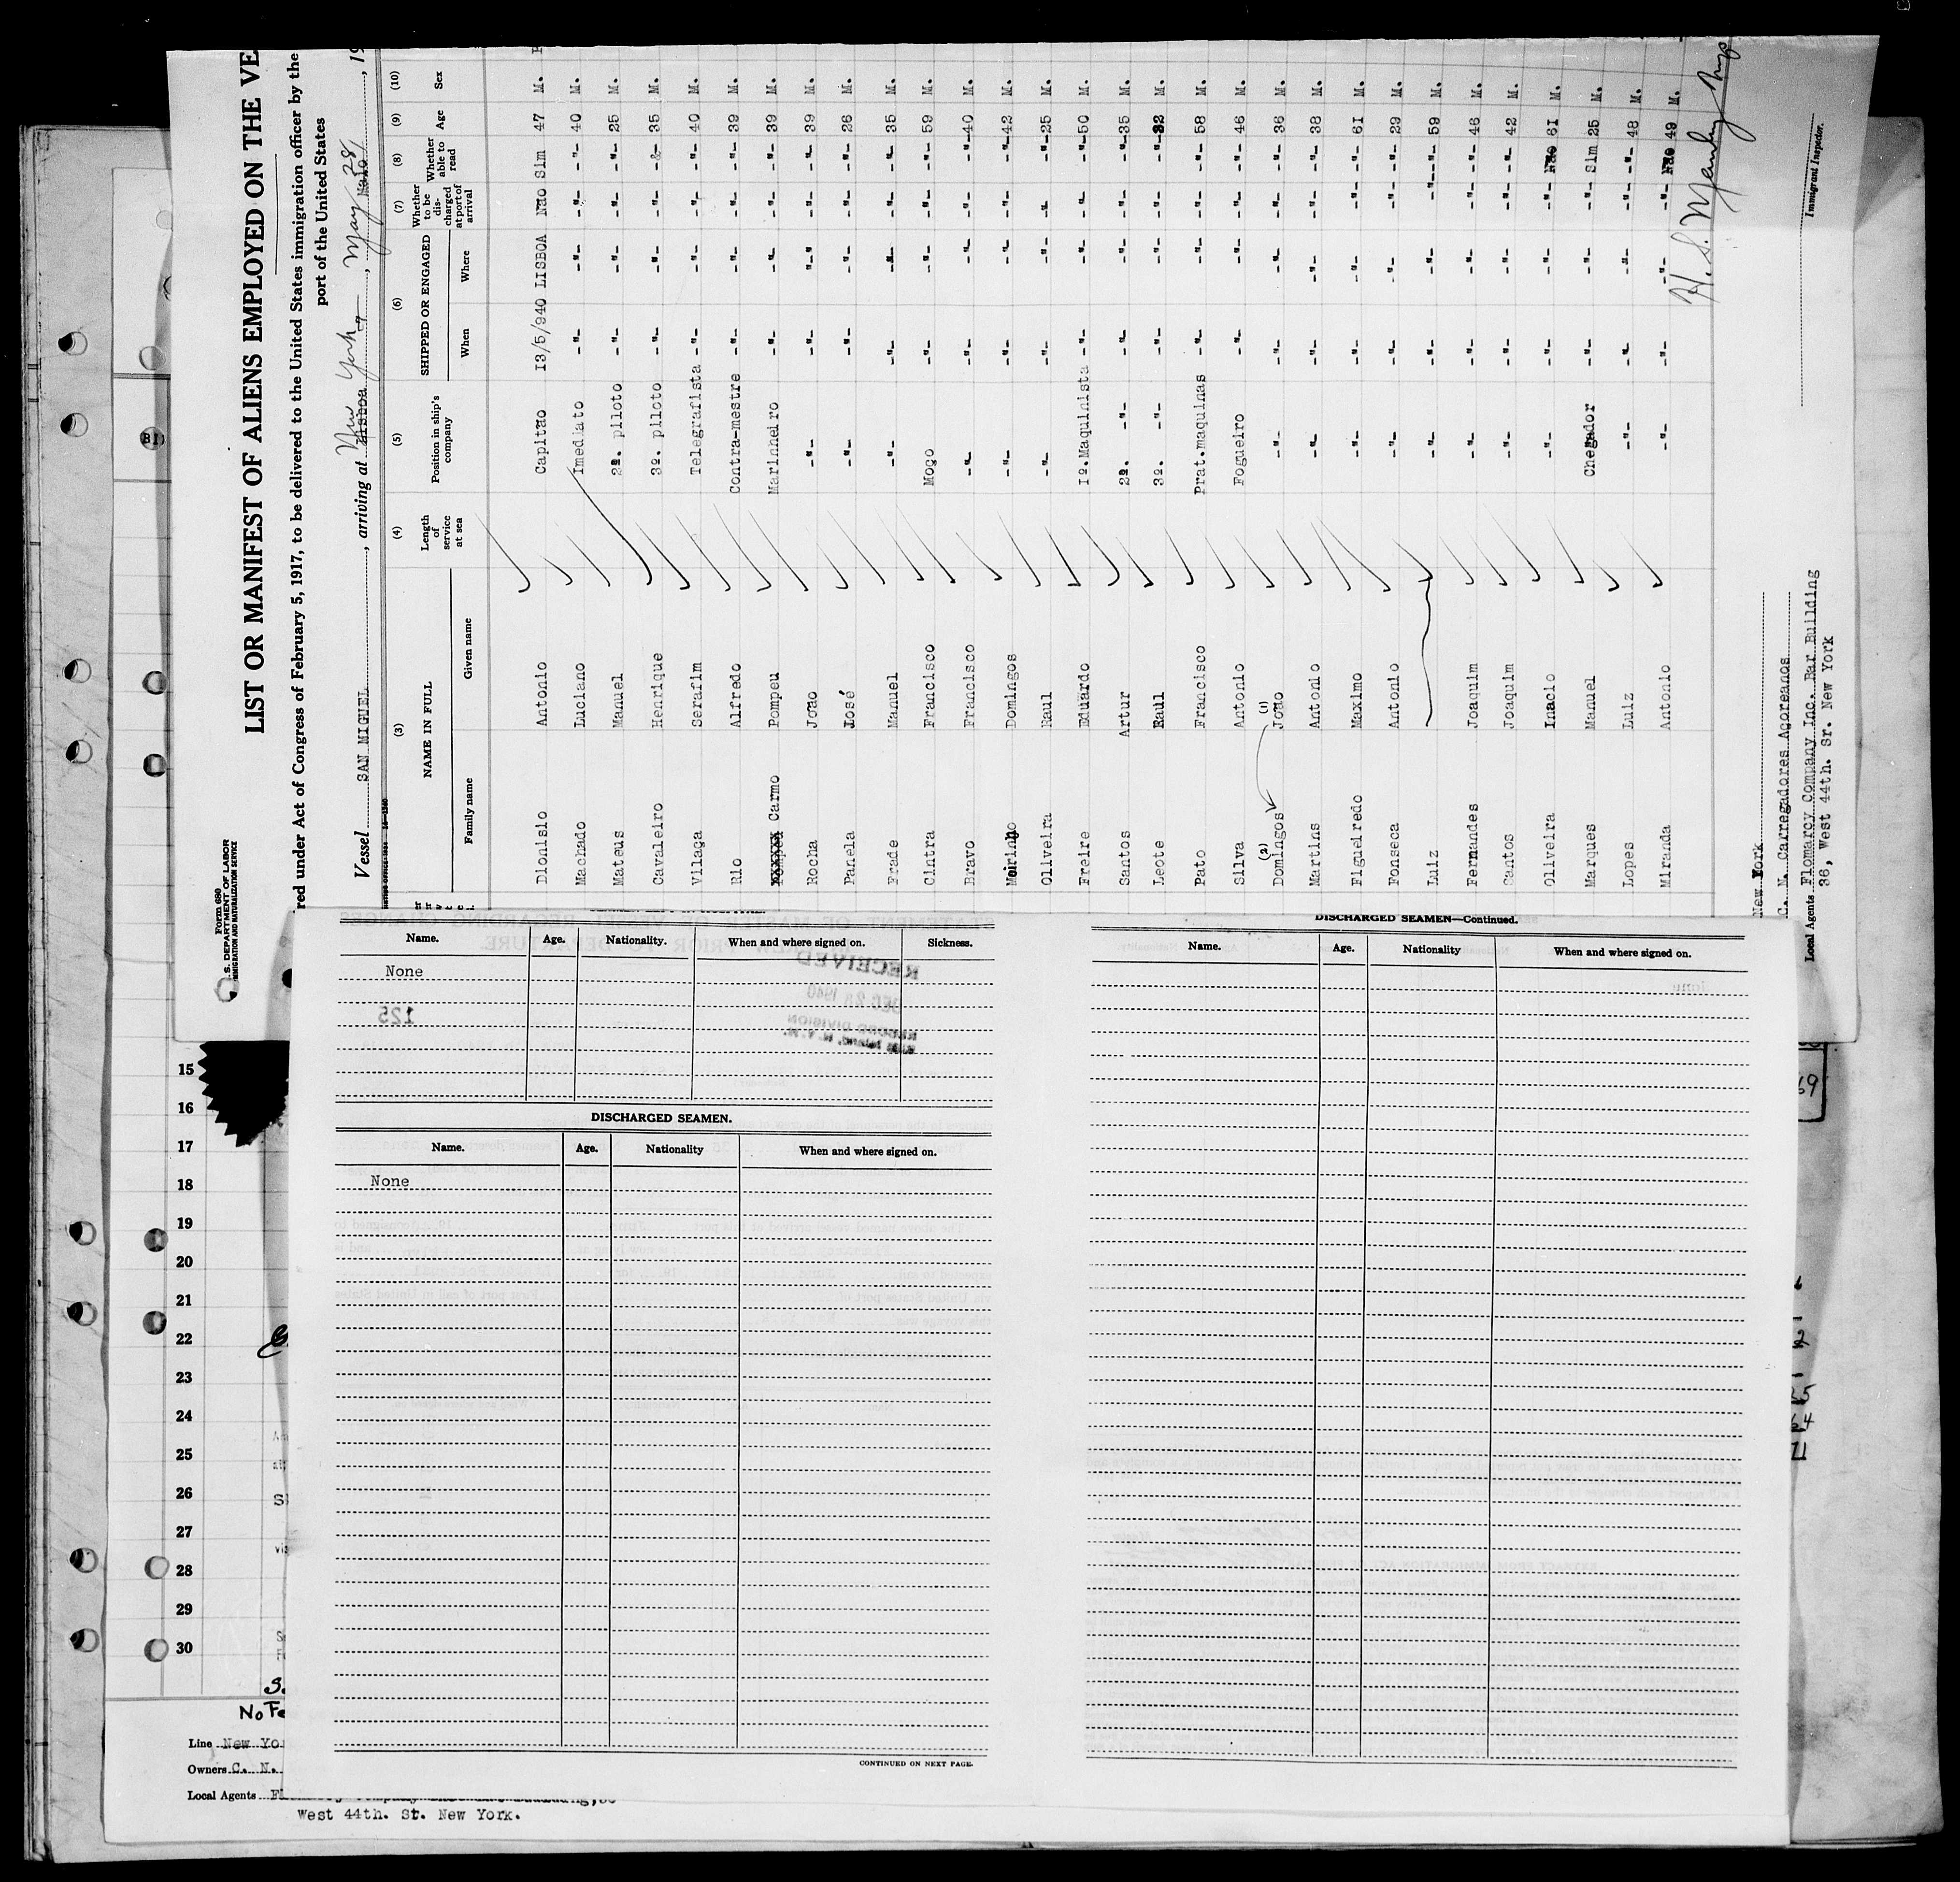 Form 680
S. DEPARTMENT OF LABOR
IMMIGRATION AND NATURALIZATION SERVICE
LIST OR MANIFEST OF ALIENS EMPLOYED ON THE VE
red under Act of Congress of February 5, 1917, to be delivered to the United States immigration officer by the
port of the United States
Vessel SAN MIGUEL, arriving at Lisboa New York, May 28, 19
(3) (4) (5) (6) (7) (8) (9) (10)
NAME IN FULL Length of service at sea Position in ship's company SHIPPED OR ENGAGED Whether to be discharged at port of arrival Whether able to read Age Sex
Family name Given name When Where
Dionisio Antonio Capitao I3/5/940 LISBOA Nao Sim 47 M.
Machado Luciano Imediato -"- -"- -"- -"- 40 M.
Mateus Manuel 2º. piloto -"- -"- -"- -"- 25 M.
Cavaleiro Henrique 3º. piloto -"- -"- -"- -&- 35 M.
Vilaça Serafim Telegrafista -"- -"- -"- -"- 40 M.
Rio Alfredo Contra-mestre -"- -"- -"- -"- 39 M.
Carmo Pompeu Marinheiro -"- -"- -"- -"- 39 M.
Rocha Joao -"- -"- -"- -"- -"- 39 M.
Panela José -"- -"- -"- -"- -"- 26 M.
Frade Manuel -"- -"- -"- -"- -"- 35 M.
Cintra Francisco Moço -"- -"- -"- -"- 59 M.
Bravo Francisco -"- -"- -"- -"- -"- 40 M.
Moirinho Domingos -"- -"- -"- -"- -"- 42 M.
Oliveira Raul -"- -"- -"- -"- -"- 25 M.
Freire Eduardo Iº.Maquinista -"- -"- -"- -"- 50 M.
Santos Artur 2º. -"- -"- -"- -"- -"- 35 M.
Leote Raul 3º. -"- -"- -"- -"- -"- 32 M.
Pato Francisco Prat.maquinas -"- -"- -"- -"- 58 M.
Silva Antonio Fogueiro -"- -"- -"- -"- 46 M.
(2) Domingos (1) João -"- -"- -"- -"- -"- 36 M.
Martins Antonio -"- -"- -"- -"- -"- 38 M.
Figueiredo Maximo -"- -"- -"- -"- -"- 6I M.
Fonseca Antonio -"- -"- -"- -"- -"- 29 M.
Luiz -"- -"- -"- -"- -"- 59 M.
Fernandes Joaquim -"- -"- -"- -"- -"- 46 M.
Santos Joaquim -"- -"- -"- -"- -"- 42 M.
Oliveira Inacio -"- -"- -"- -"- Nao 6I M.
Marques Manuel Chegador -"- -"- -"- Sim 25 M.
Lopes Luiz -"- -"- -"- -"- -"- 48 M.
Miranda Antonio -"- -"- -"- -"- Nao 49 M.
New York
C. N. Carregadores Açoreanos
Local Agents Flomarcy Company Inc. Bar Building
36, West 44th. Sr. New York
Immigrant Inspector.
Name. Age. Nationality. When and where signed on. Sickness.
None
125
RECEIVED
DEC 28 1940
RECORD DIVISION
DISCHARGED SEAMEN.
Name. Age. Nationality When and where signed on.
None
CONTINUED ON NEXT PAGE.
DISCHARGED SEAMEN—Continued.
Name. Age. Nationality When and where signed on.
15
16
17
18
19
20
21
22
23
24
25
26
27
28
29
30
No Fe
Line New Yo
Owners C. N.
Local Agents
West 44th. St. New York.
69